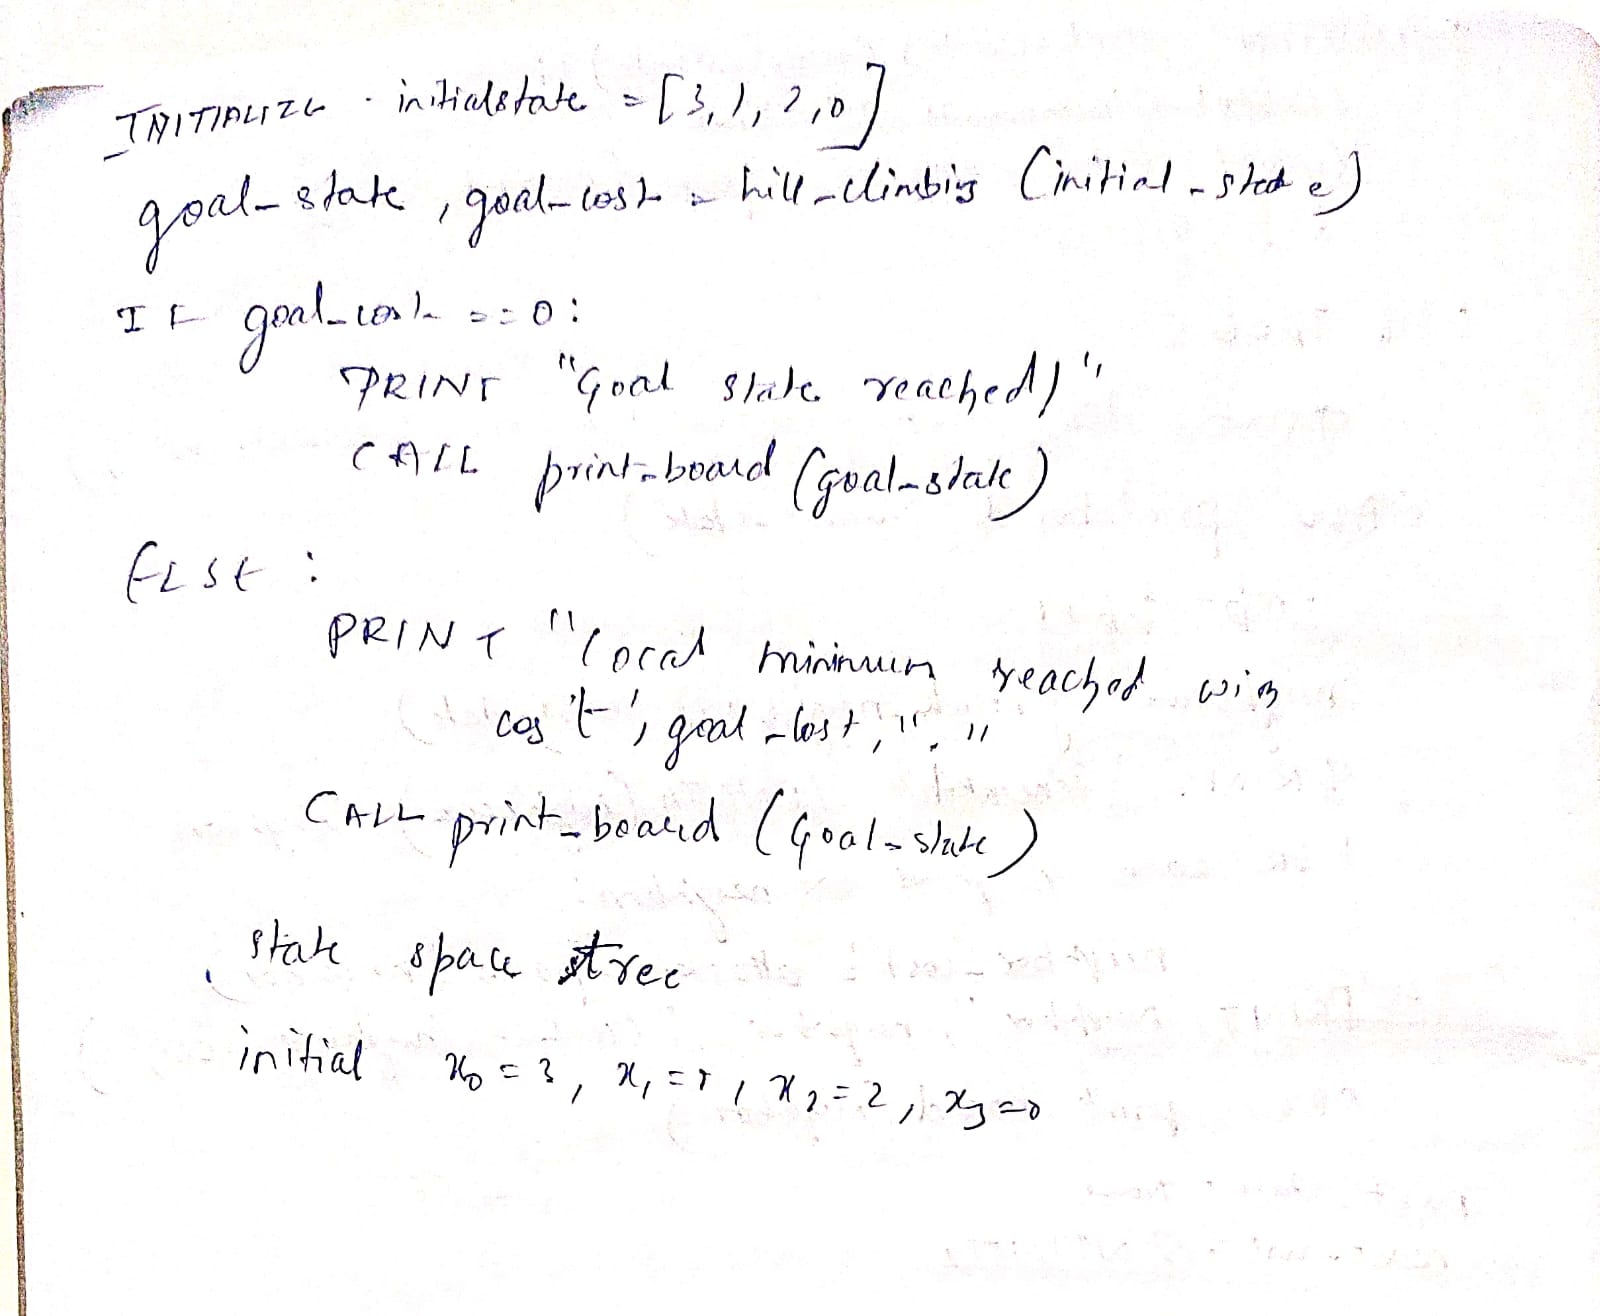 INITIALIZE initialstate = [3, 1, 2, 0]
goal_state, goal_cost = hill_climbing (initial_state)
IF goal_cost == 0:
PRINT "Goal state reached!"
CALL print_board (goal_state)
ELSE :
PRINT "Local minimum reached with
cos 't', goal_cost, "."
CALL print_board (Goal_state)
state space tree
initial x₀ = 3, x₁ = 1, x₂ = 2, x₃ = 0